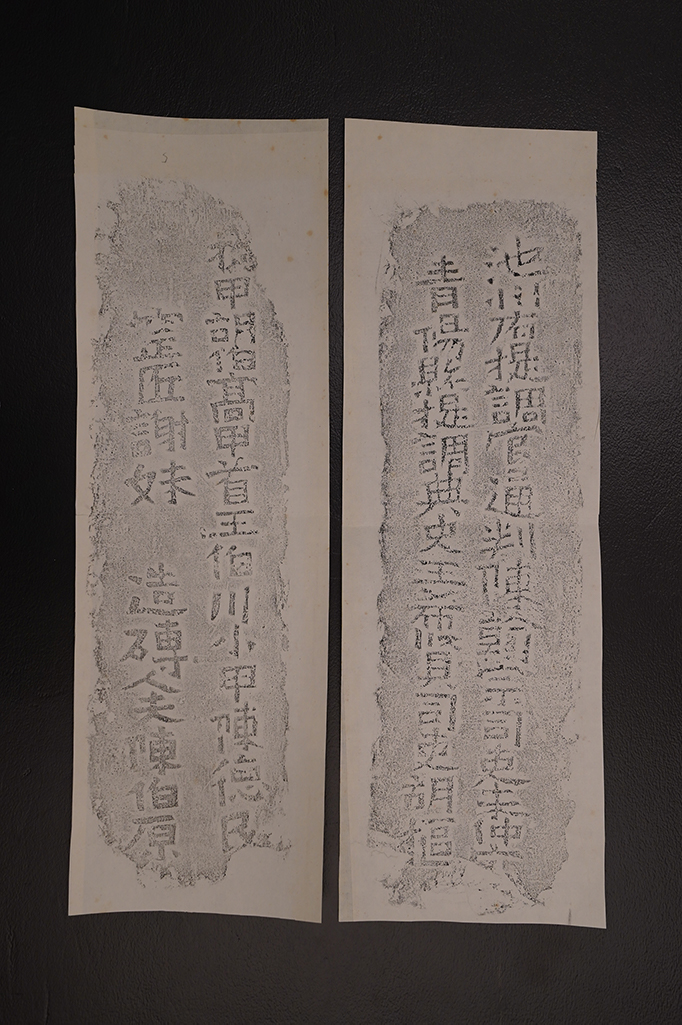 池州府提調官通判陳司吏
青陽縣提調典史王司吏
甲諸高甲首王伯川小甲陳德民
窑匠謝妹 造磚人夫陳伯原